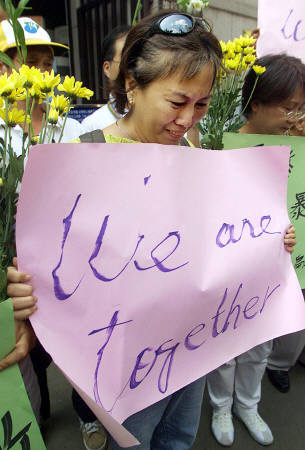 We are
together
暴